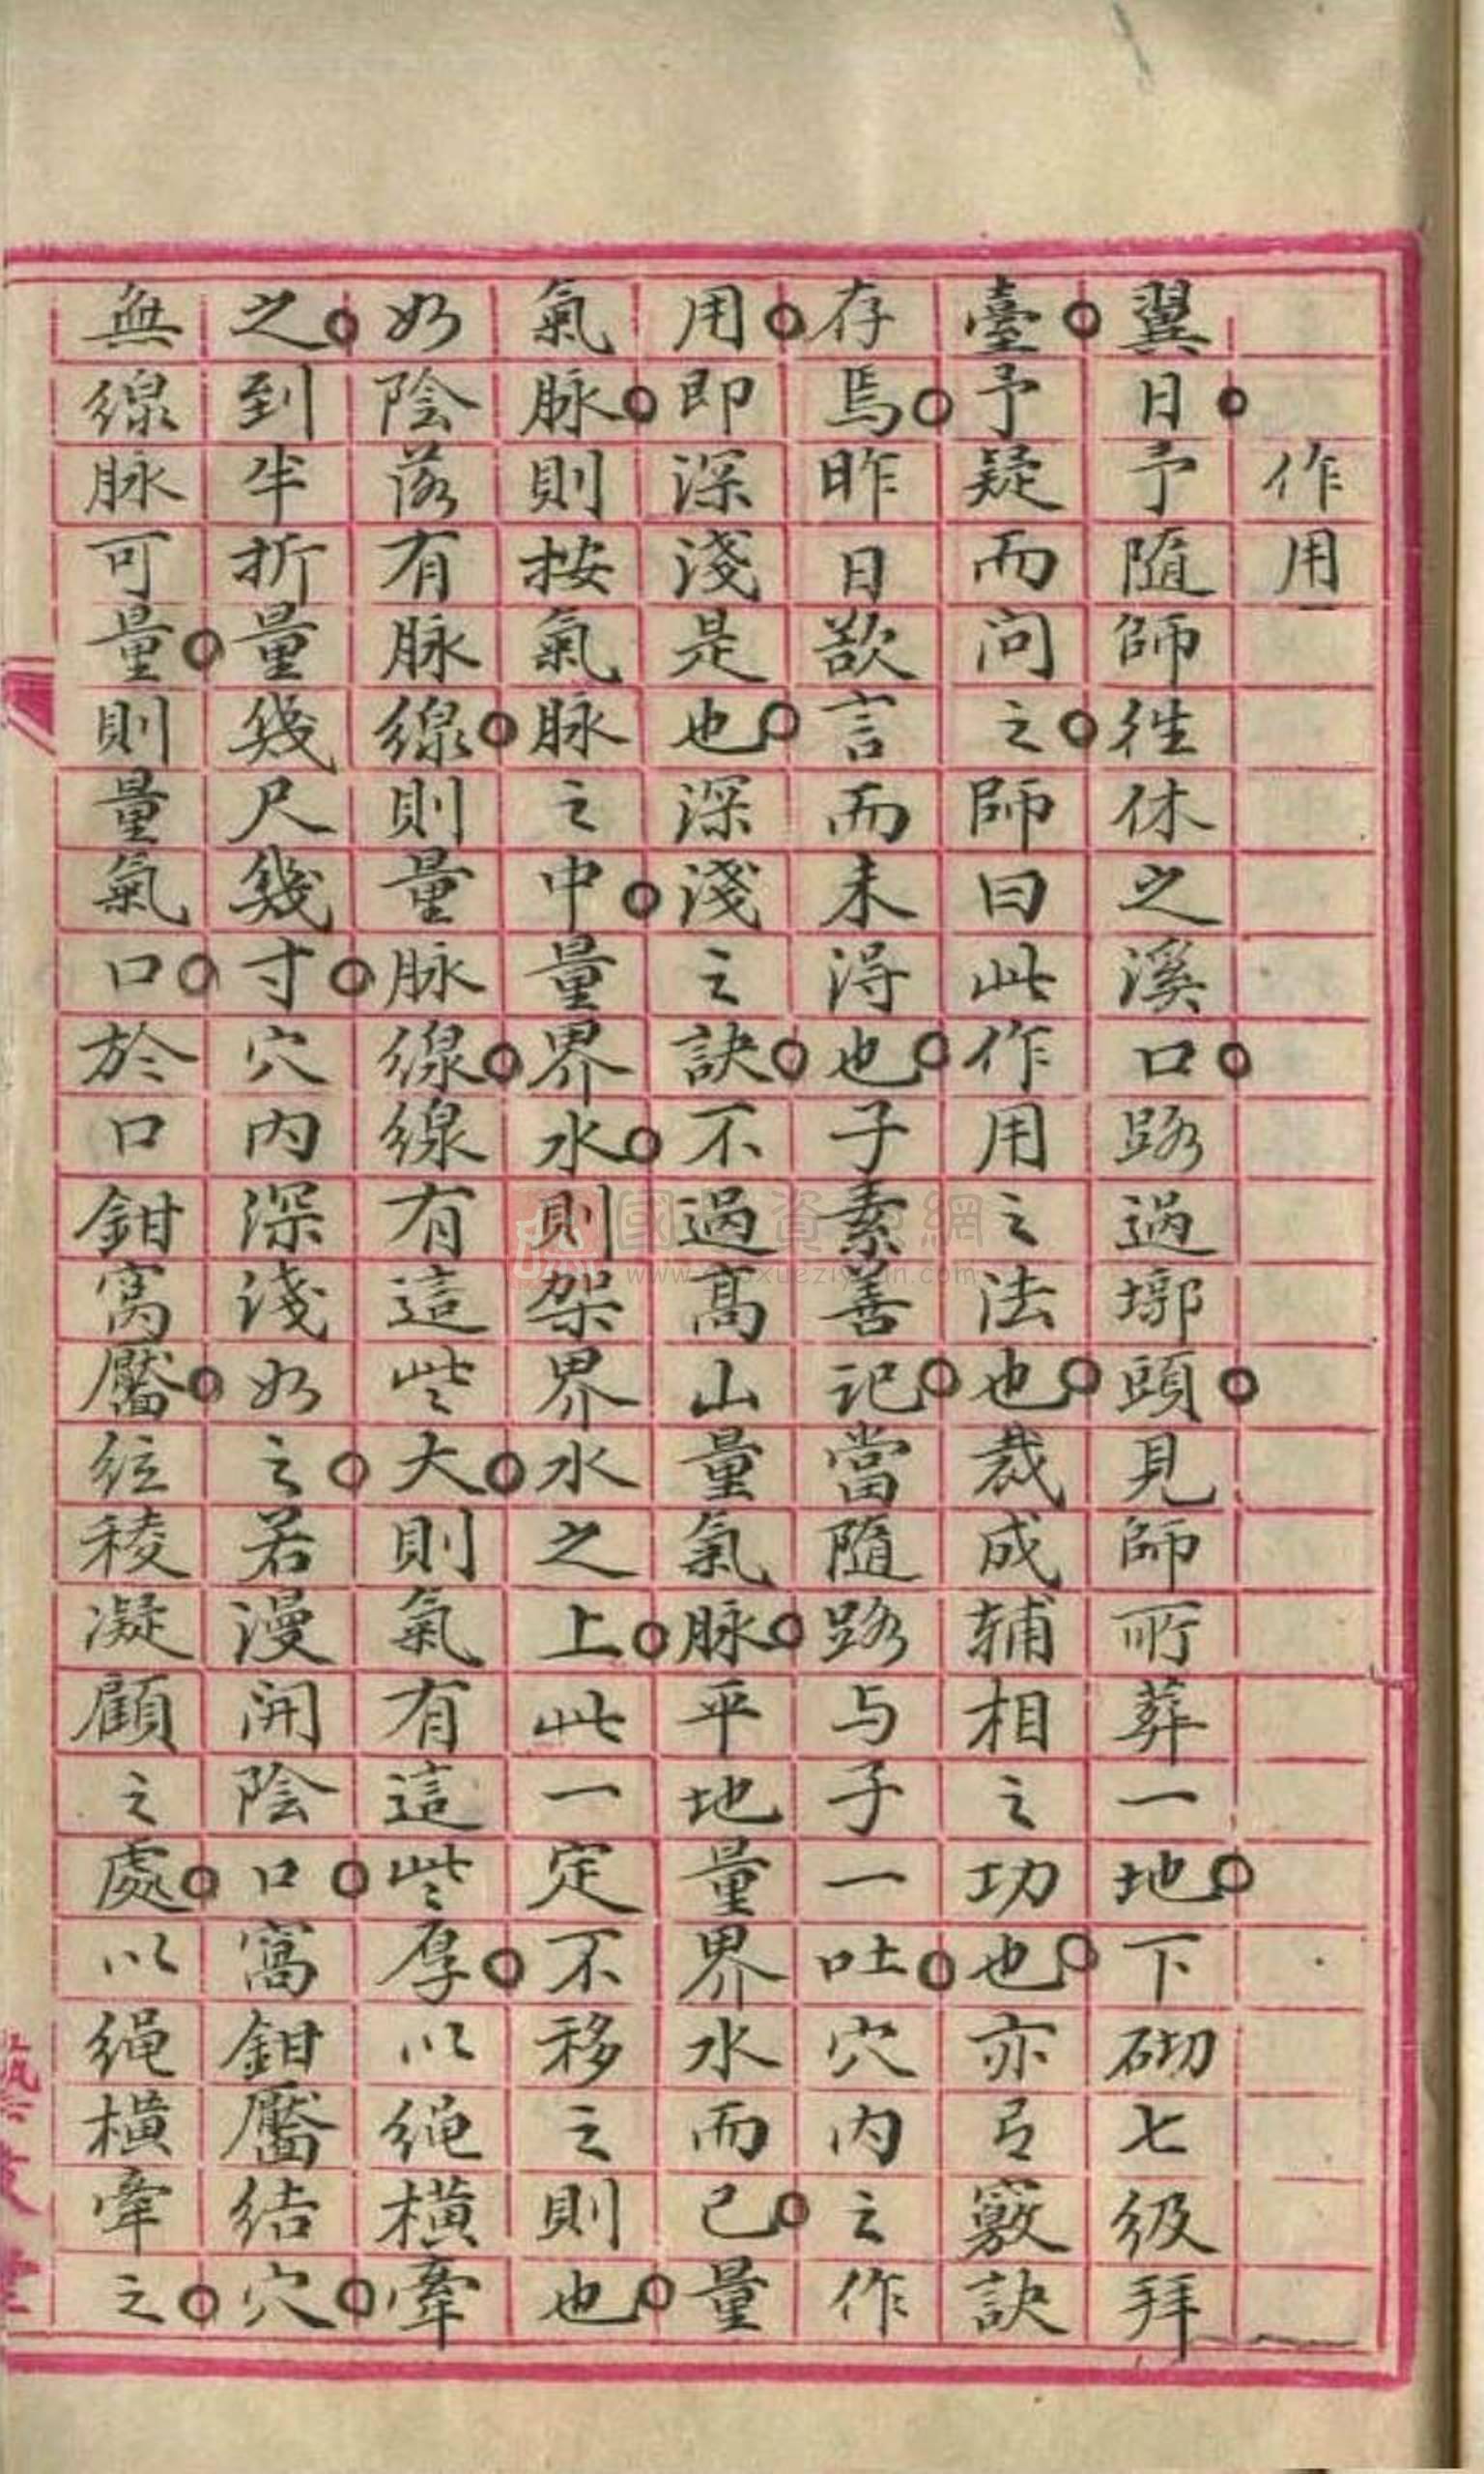 作用
翼日予隨師往休之溪口路過墎頭見師所葬一地下砌七级拜
臺予疑而问之師曰此作用之法也裁成辅相之功也亦有竅訣
存焉昨日欲言而未淂也子素善记當隨路与子一吐穴内之作
用即深淺是也深淺之訣不過髙山量氣脉平地量界水而已量
氣脉則按氣脉之中量界水則架界水之上此一定不移之則也
如陰落有脉線則量脉線線有這些大則氣有這些厚以绳横牽
之到半折量幾尺幾寸穴内深淺如之若漫開陰口窩鉗靨结穴
無線脉可量則量氣口於口鉗窝靨絃稜凝顧之處以绳横牽之
國學資源網
www.guoxueziyuan.com